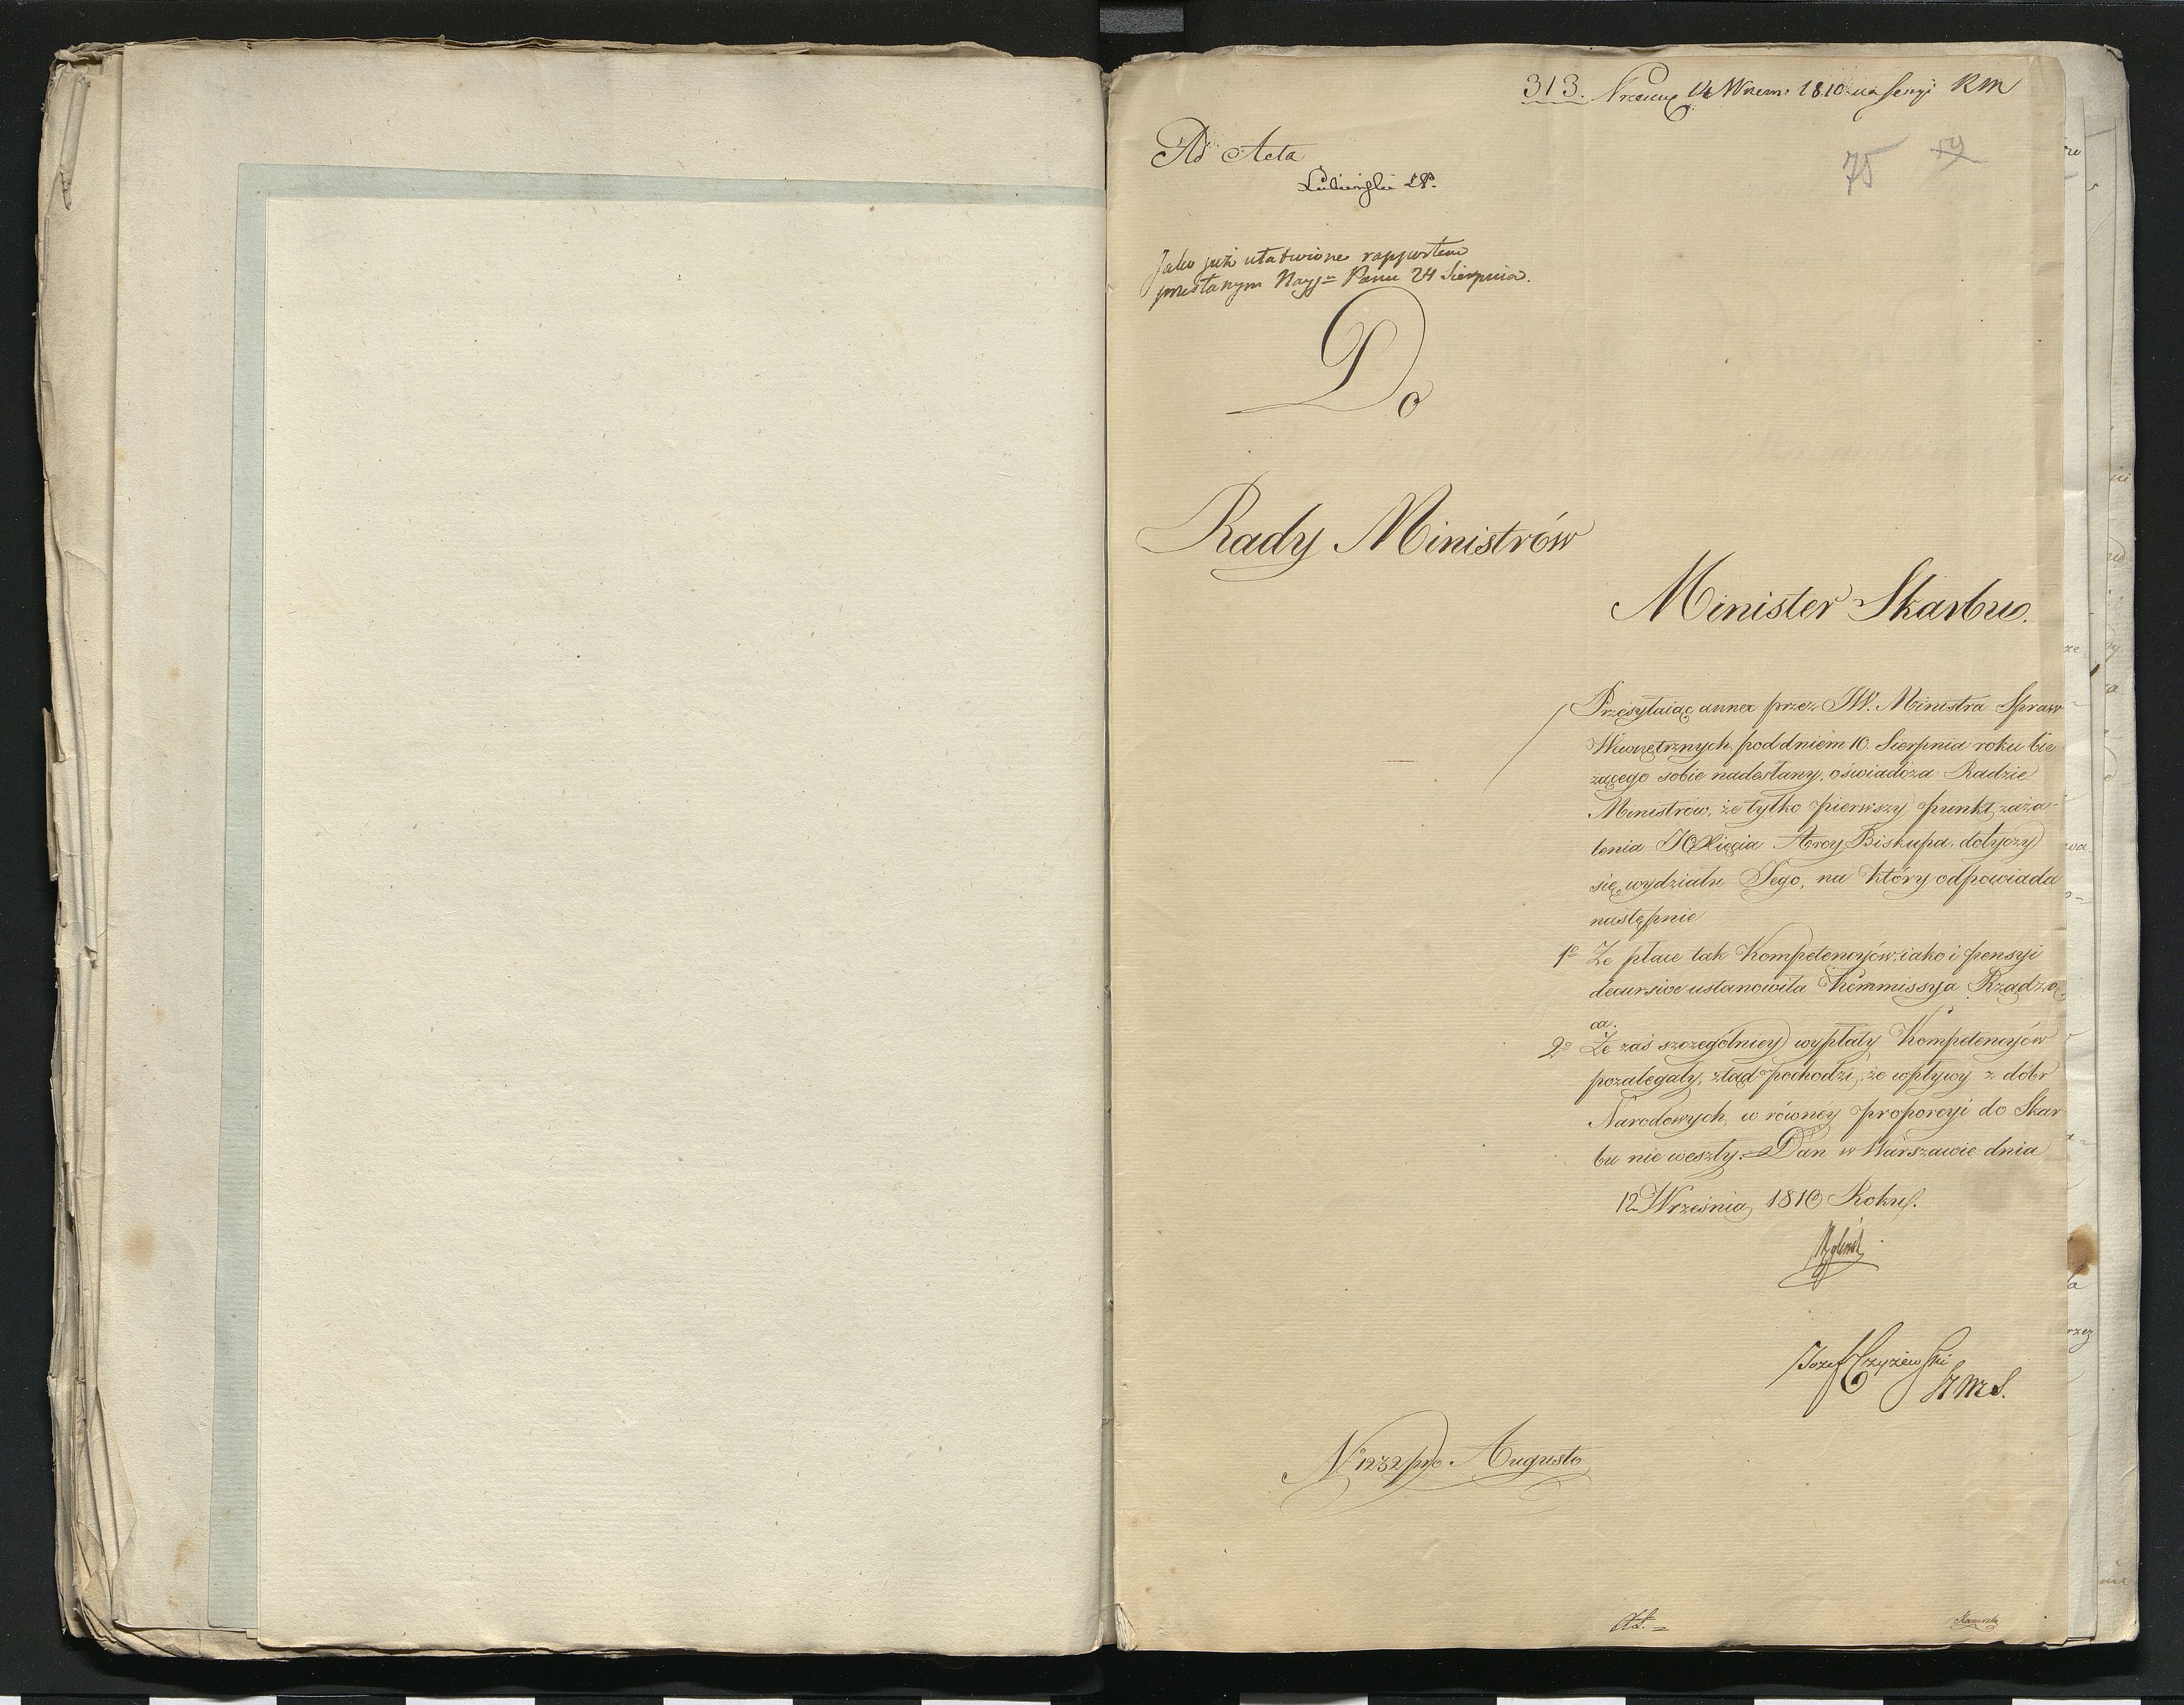 313. 14 Wrzem: 1810 na Sessyi RM
75 59
Ad Acta
Lubieński
Jako już ułatwione rapportem
przesłanym Nayj= Panu 24 Sierpnia.
Do
Rady Ministrów
Minister Skarbu.
Przesyłaiąc annex przez JW. Ministra Spraw
Wewnętrznych pod dniem 10. Sierpnia roku bie
żącego sobie nadesłany, oświadcza Radzie
Ministrów, że tylko pierwszy punkt zaża-
lenia JOXięcia Arcy Biskupa dotyczy
się wydziału Jego, na który odpowiada
następnie
1o Że płace tak Kompetencyów iako i pensyi
decursive ustanowiła Kommissya Rządzą-
ca.
2o Że zaś szczególniey wypłaty Kompetencyów
pozalegały, ztąd pochodzi, że wpływy z dóbr
Narodowych w równéy proporcyi do Skar
bu nie weszły. Dan w Warszawie dnia
12 Września 1810 Roku.
Jozef Czyżewski
SMS.
No 1232 pro Augusto